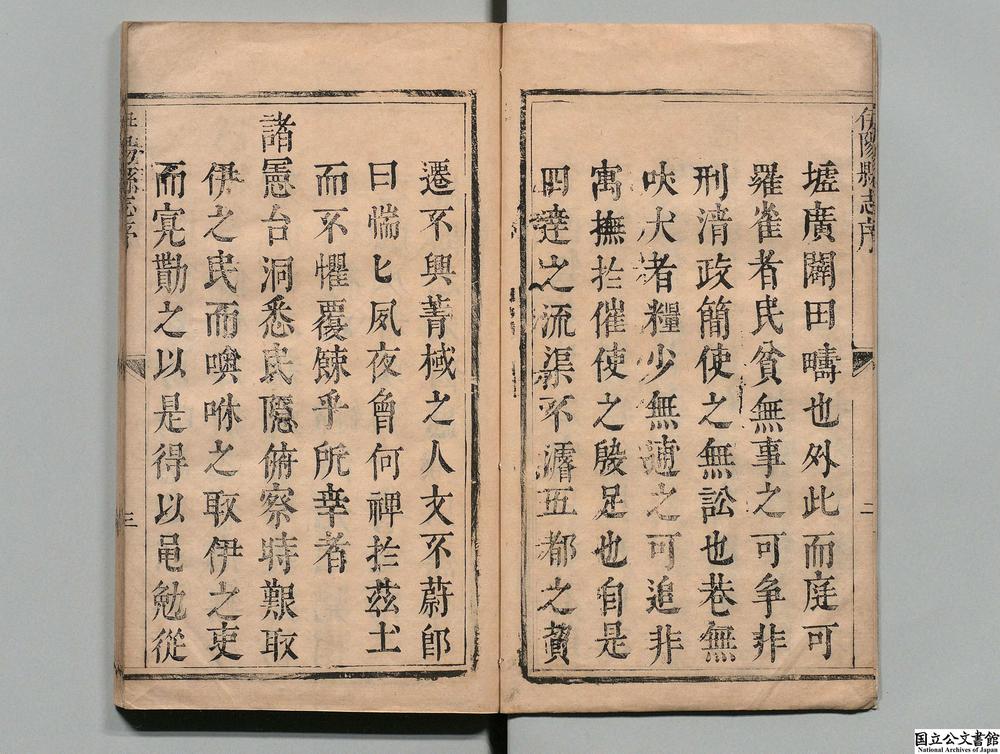 伊陽縣志序
二
墟廣闢田疇也外此而庭可
羅雀者民貧無事之可争非
刑清政簡使之無訟也巷無
吠犬者糧少無逋之可追非
寓撫扵催使之殷足也自是
四達之流渠不濬五都之貿
遷不興菁棫之人文不蔚卽
曰惴匕夙夜曾何裨扵兹土
而不懼覆餗乎所幸者
諸憲台洞悉民隱俯察時艱取
伊之民而噢咻之取伊之吏
而寬勷之以是得以黽勉從
陽縣志序
三
国立公文書館
National Archives of Japan